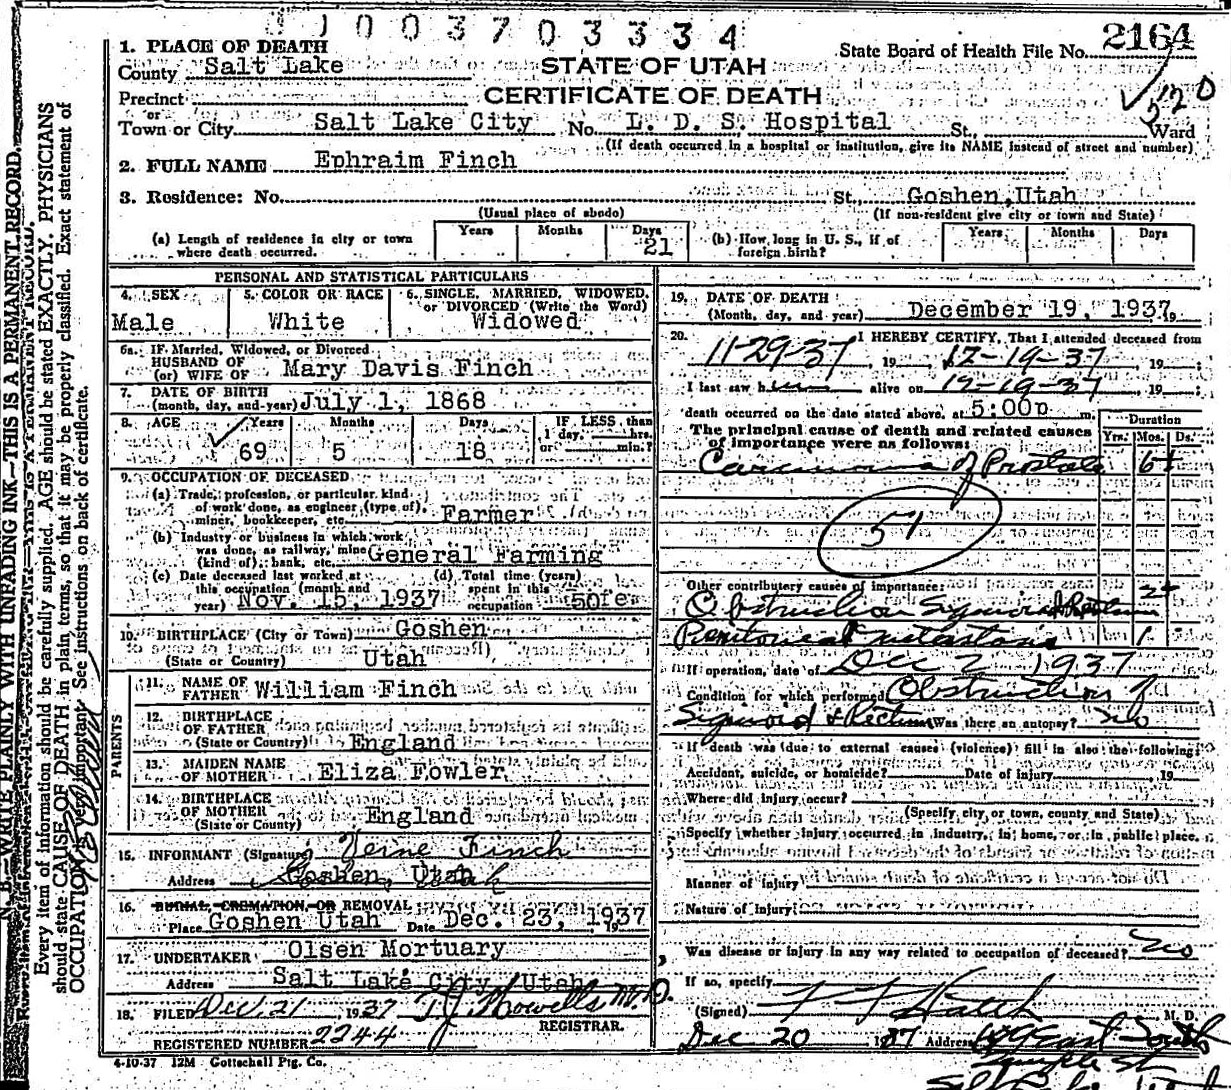 003703334
2164
State Board of Health File No.
1. PLACE OF DEATH
County Salt Lake
STATE OF UTAH
CERTIFICATE OF DEATH
520
Precinct
or
Town or City Salt Lake City No. L. D. S. Hospital St., Ward
(If death occurred in a hospital or institution, give its NAME instead of street and number)
2. FULL NAME Ephraim Finch
3. Residence: No. St., Goshen, Utah
(Usual place of abode) (If non-resident give city or town and State)
(a) Length of residence in city or town where death occurred. Years Months Days 21
(b) How long in U. S., if of foreign birth? Years Months Days
PERSONAL AND STATISTICAL PARTICULARS
4. SEX 5. COLOR OR RACE 6. SINGLE, MARRIED, WIDOWED, or DIVORCED (Write the Word)
Male White Widowed
6a. IF Married, Widowed, or Divorced
HUSBAND OF
(or) WIFE OF Mary Davis Finch
7. DATE OF BIRTH
(month, day, and year) July 1, 1868
8. AGE Years Months Days IF LESS than
1 day, hrs.
or min.?
69 5 18
9. OCCUPATION OF DECEASED
(a) Trade, profession, or particular kind
of work done, as engineer (type of),
miner, bookkeeper, etc. Farmer
(b) Industry or business in which work
was done, as railway, mine
(kind of), bank, etc. General Farming
(c) Date deceased last worked at
this occupation (month and
year) Nov. 15, 1937
(d) Total time (years)
spent in this
occupation 50
10. BIRTHPLACE (City or Town) Goshen
(State or Country) Utah
PARENTS
11. NAME OF
FATHER William Finch
12. BIRTHPLACE
OF FATHER
(State or Country) England
13. MAIDEN NAME
OF MOTHER Eliza Fowler
14. BIRTHPLACE
OF MOTHER
(State or Country) England
15. INFORMANT (Signature) Verne Finch
Address Goshen, Utah
16. BURIAL, CREMATION, OR REMOVAL
Place Goshen Utah Date Dec. 23, 1937 19
17. UNDERTAKER Olsen Mortuary
Address Salt Lake City, Utah
18. FILED Dec. 21 1937 T. J. Howells M. D.
REGISTRAR.
REGISTERED NUMBER 2244
4-10-37 12M Gottschall Ptg. Co.
19. DATE OF DEATH
(Month, day, and year) December 19, 1937 19
20. I HEREBY CERTIFY, That I attended deceased from
11-29-37, 19 12-19-37, 19 ;
I last saw him alive on 12-19-37, 19 ;
death occurred on the date stated above, at 5:00p m.
The principal cause of death and related causes
of importance were as follows:
Duration
Yrs. Mos. Ds.
Carcinoma of Prostate 6+
51
Other contributory causes of importance:
Obstruction Sigmoid & Rectum 2+
Peritoneal metastasis 1
If operation, date of Dec 2 1937
Condition for which performed Obstruction of
Sigmoid & Rectum Was there an autopsy? No
If death was due to external causes (violence) fill in also the following:
Accident, suicide, or homicide? Date of injury , 19
Where did injury occur?
(Specify city or town, county and State)
Specify whether injury occurred in industry, in home, or in public place.
Manner of injury
Nature of injury
Was disease or injury in any way related to occupation of deceased? No
If so, specify
(Signed) F F Hatch M. D.
Dec 20 1937 Address East South
Temple St
Salt Lake
N. B.—WRITE PLAINLY WITH UNFADING INK—THIS IS A PERMANENT RECORD.
Every item of information should be carefully supplied. AGE should be stated EXACTLY. PHYSICIANS
should state CAUSE OF DEATH in plain terms, so that it may be properly classified. Exact statement of
OCCUPATION is very important. See instructions on back of certificate.